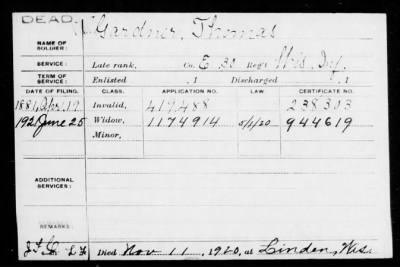 DEAD.
Gardner, Thomas
NAME OF
SOLDIER:
SERVICE: Late rank, Co. E 30 Reg't Wis. Inf.
TERM OF
SERVICE: Enlisted , 1 Discharged , 1
DATE OF FILING. CLASS. APPLICATION NO. LAW. CERTIFICATE NO.
1881, Apr. 19 Invalid, 419488 238303
1921 June 25 Widow, 1174914 5/1/20 944619
Minor,
ADDITIONAL
SERVICES:
REMARKS:
Died Nov 11, 1920, at Linden, Wis.